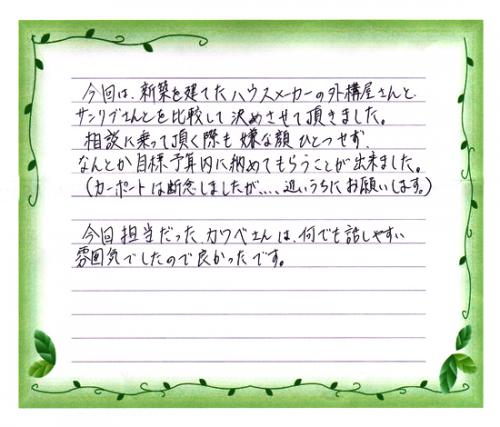 今回は、新築を建てたハウスメーカーの外構屋さんと、
サンリブさんとを比較して決めさせて頂きました。
相談に乗って頂く際も嫌な顔ひとつせず、
なんとか目標予算内に納めてもらうことが出来ました。
(カーポートは断念しましたが....、近いうちにお願いします。)
今回担当だったカワベさんは、何でも話しやすい
雰囲気でしたので良かったです。